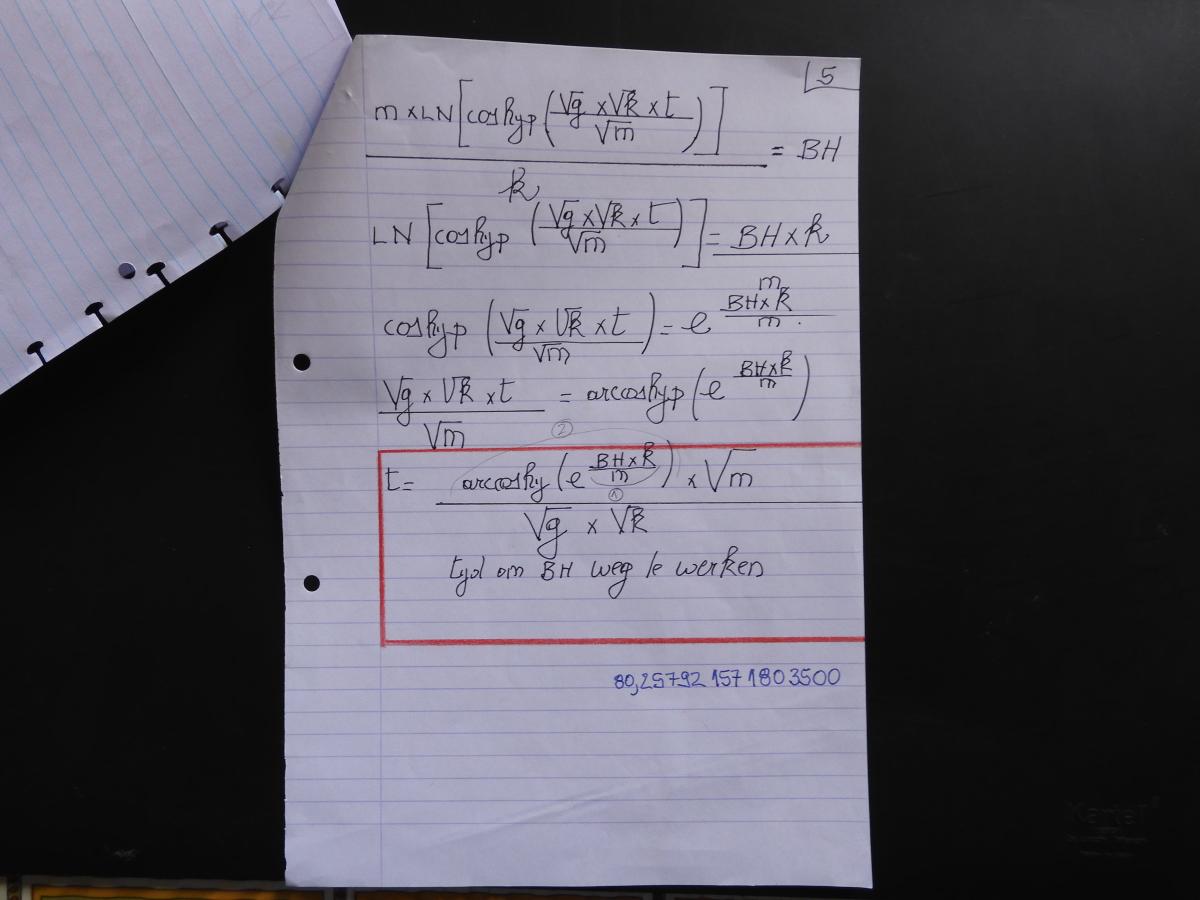 5
m x LN [coshyp (√g x √k x t / √m)] / k = BH
LN [coshyp (√g x √k x t / √m)] = BH x k / m
coshyp (√g x √k x t / √m) = e^(BH x k / m)
√g x √k x t / √m = arcoshyp (e^(BH x k / m))
②
t = arccoshy (e^(BH x k / m)) x √m / √g x √k
①
tyd om BH weg te werken
80,25792 157 1803500
Kartell